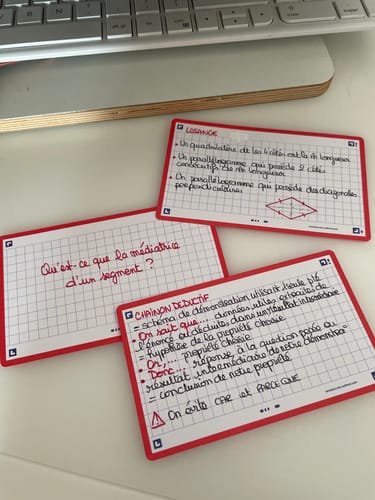 LOSANGE
• Un quadrilatère dt les 4 côtés ont la m̂ longueur
• Un parallélogramme qui possède 2 côtés
consécutifs de m̂ longueur
• Un parallélogramme qui possède des diagonales
perpendiculaires
Qu'est-ce que la médiatrice
d'un segment ?
CHAÎNON DÉDUCTIF
= schéma de démonstration utilisant
• On sait que... données utiles extraites de
l'énoncé ou déduites dans
= hypothèse de la propriété choisie
• Or,... propriété choisie
• Donc... réponse à la question posée ou
résultat intermédiaire de notre démonstra°
= conclusion de notre propriété
On évite CAR et PARCE QUE